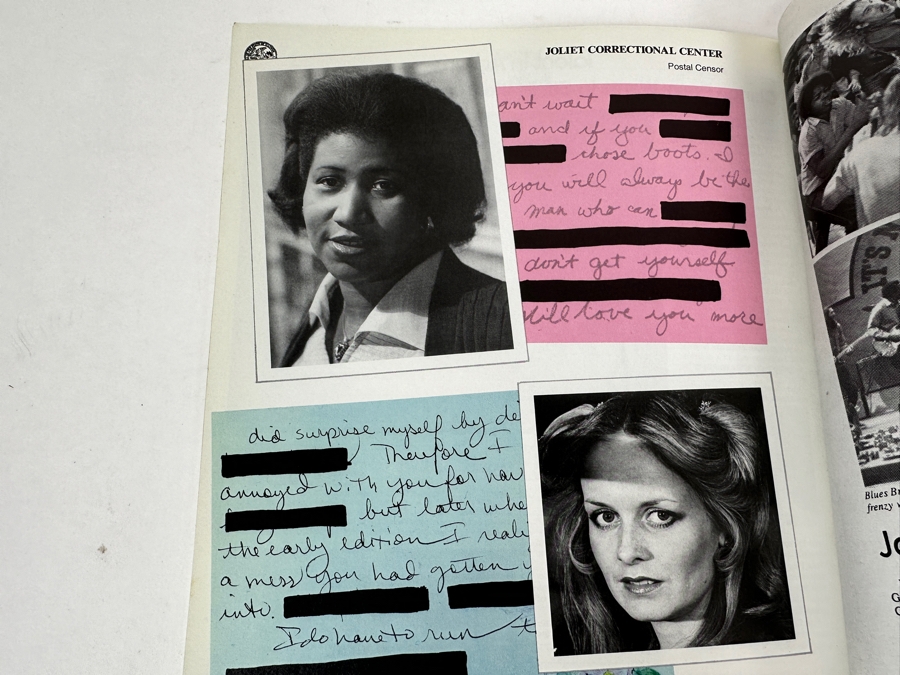 JOLIET CORRECTIONAL CENTER
Postal Censor
an't wait
and if you
those boots. I
you will always be the
man who can
don't get yourself
still love you more
did surprise myself by de
Therefore I
annoyed with you for hav
but later whe
the early edition I reali
a mess you had gotten y
into.
I do have to run t
IT'S
Blues Br
frenzy w
Jo
G
C